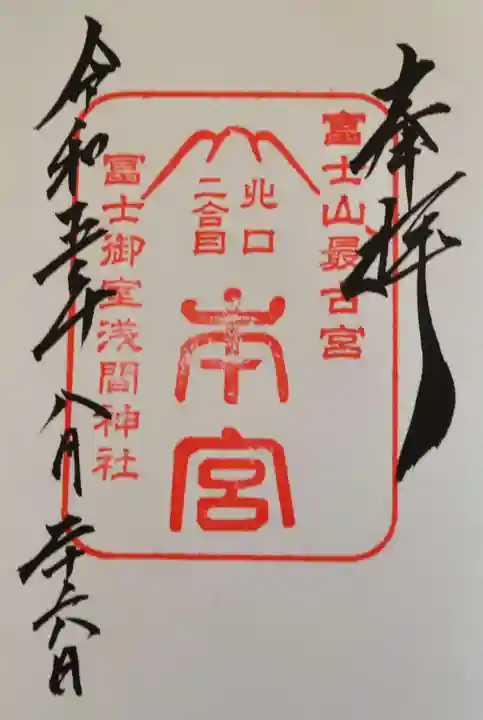 奉拝
冨士山最古宮
北口
二合目
本宮
冨士御室浅間神社
令和五年八月二十六日